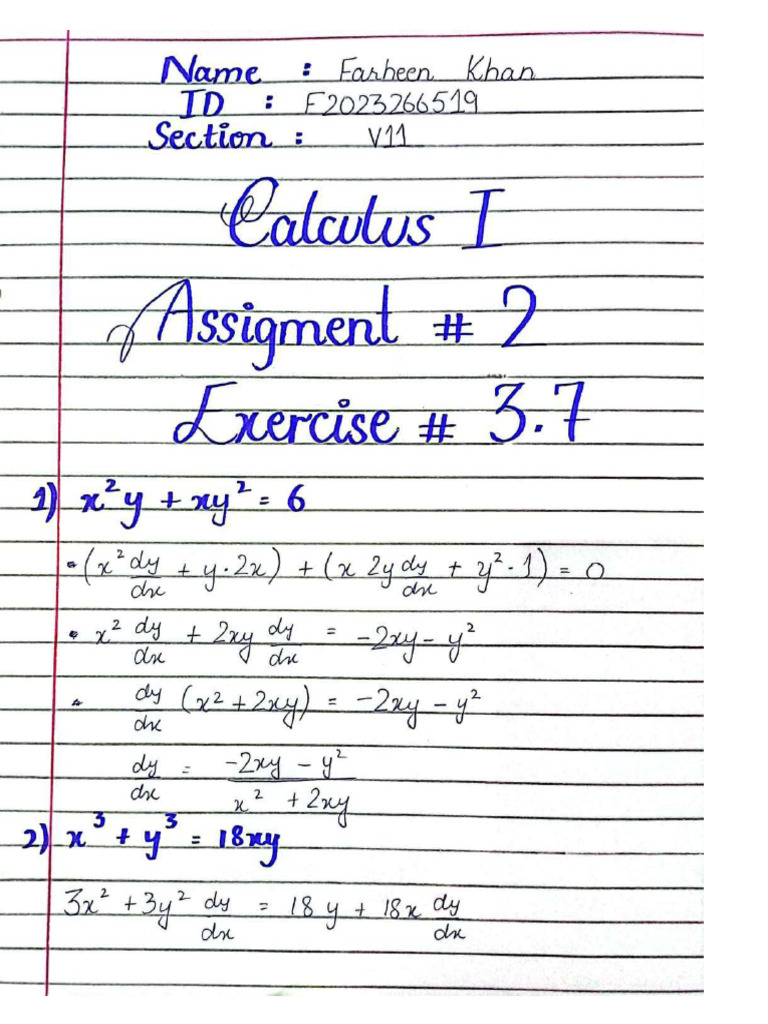 Name : Farheen Khan
ID : F2023266519
Section : V11
Calculus I
Assigment # 2
Exercise # 3.7
1) x²y + xy² = 6
(x² dy/dx + y·2x) + (x 2y dy/dx + y²·1) = 0
x² dy/dx + 2xy dy/dx = -2xy - y²
dy/dx (x² + 2xy) = -2xy - y²
dy/dx = (-2xy - y²)/(x² + 2xy)
2) x³ + y³ = 18xy
3x² + 3y² dy/dx = 18y + 18x dy/dx